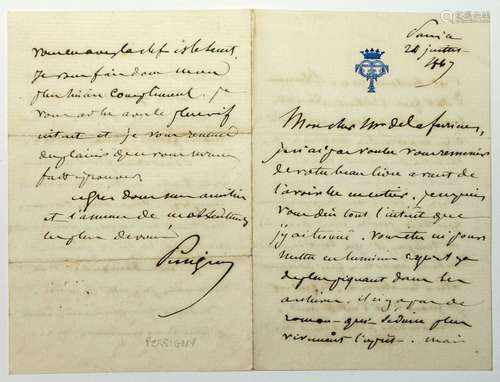 Paris
24 juillet
1867
Mon cher Mr de la
je n'ai pas voulu vous remercier
de votre beau livre avant de
l'avoir lu en entier. Je puis
vous dire tout l'intérêt que
j'y ai trouvé. vous
mettre en lumière ce qu'il y a
de plus piquant dans les
archives. il n'y a pas de
roman qui séduise plus
vivement l'esprit. mais
vous en avez la clef et le secret.
Je vous fais donc mon
plus sincère compliment. je
vous ai lu avec le plus vif
intérêt et je vous remercie
du plaisir que vous m'avez
fait éprouver
agréez donc mon amitié
et l'assurance de mes sentiments
les plus dévoués
Persigny
PERSIGNY